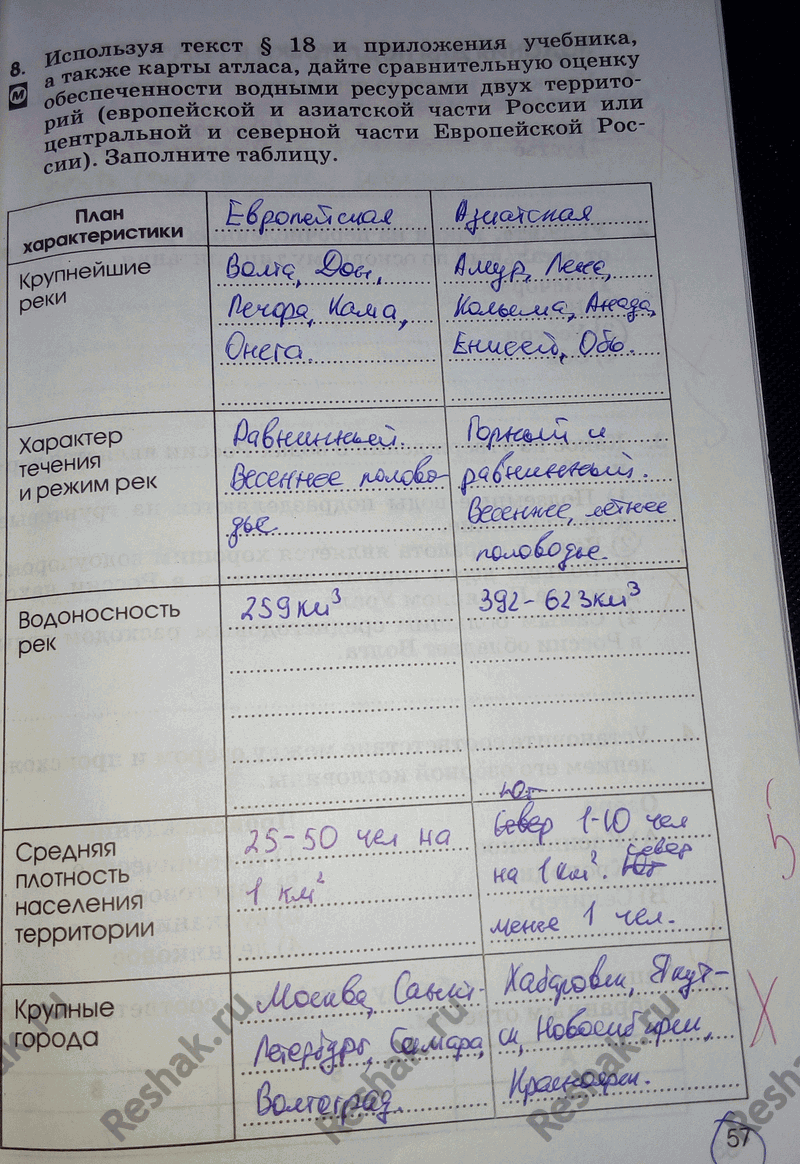 8. Используя текст § 18 и приложения учебника,
а также карты атласа, дайте сравнительную оценку
М обеспеченности водными ресурсами двух террито-
рий (европейской и азиатской части России или
центральной и северной части Европейской Рос-
сии). Заполните таблицу.
План
характеристики
Европейская
Азиатская
Крупнейшие
реки
Волга, Дон,
Печора, Кама,
Онега.
Амур, Лена,
Колыма, Анада,
Енисей, Обь.
Характер
течения
и режим рек
Равнинный.
Весеннее полово-
дье.
Горный и
равнинный.
Весеннее, летнее
половодье.
Водоносность
рек
259 км³
392-623км³
Средняя
плотность
населения
территории
25-50 чел на
1 км²
Юг
Север 1-10 чел
север
на 1 км². Юг
менее 1 чел.
Крупные
города
Москва, Санкт-
Петербург, Самара,
Волгоград.
Хабаровск, Якут-
ск, Новосибирск,
Красноярск.
57
Reshak.ru
Reshak.ru
Reshak.ru